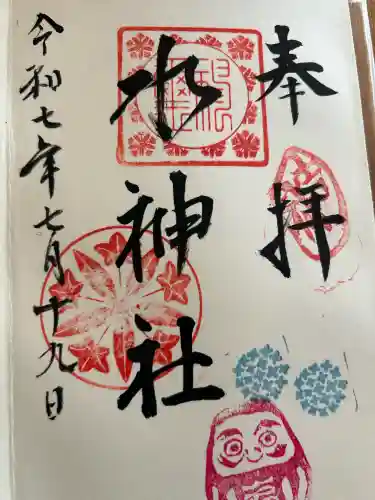 奉拝
水神社
令和七年七月十九日